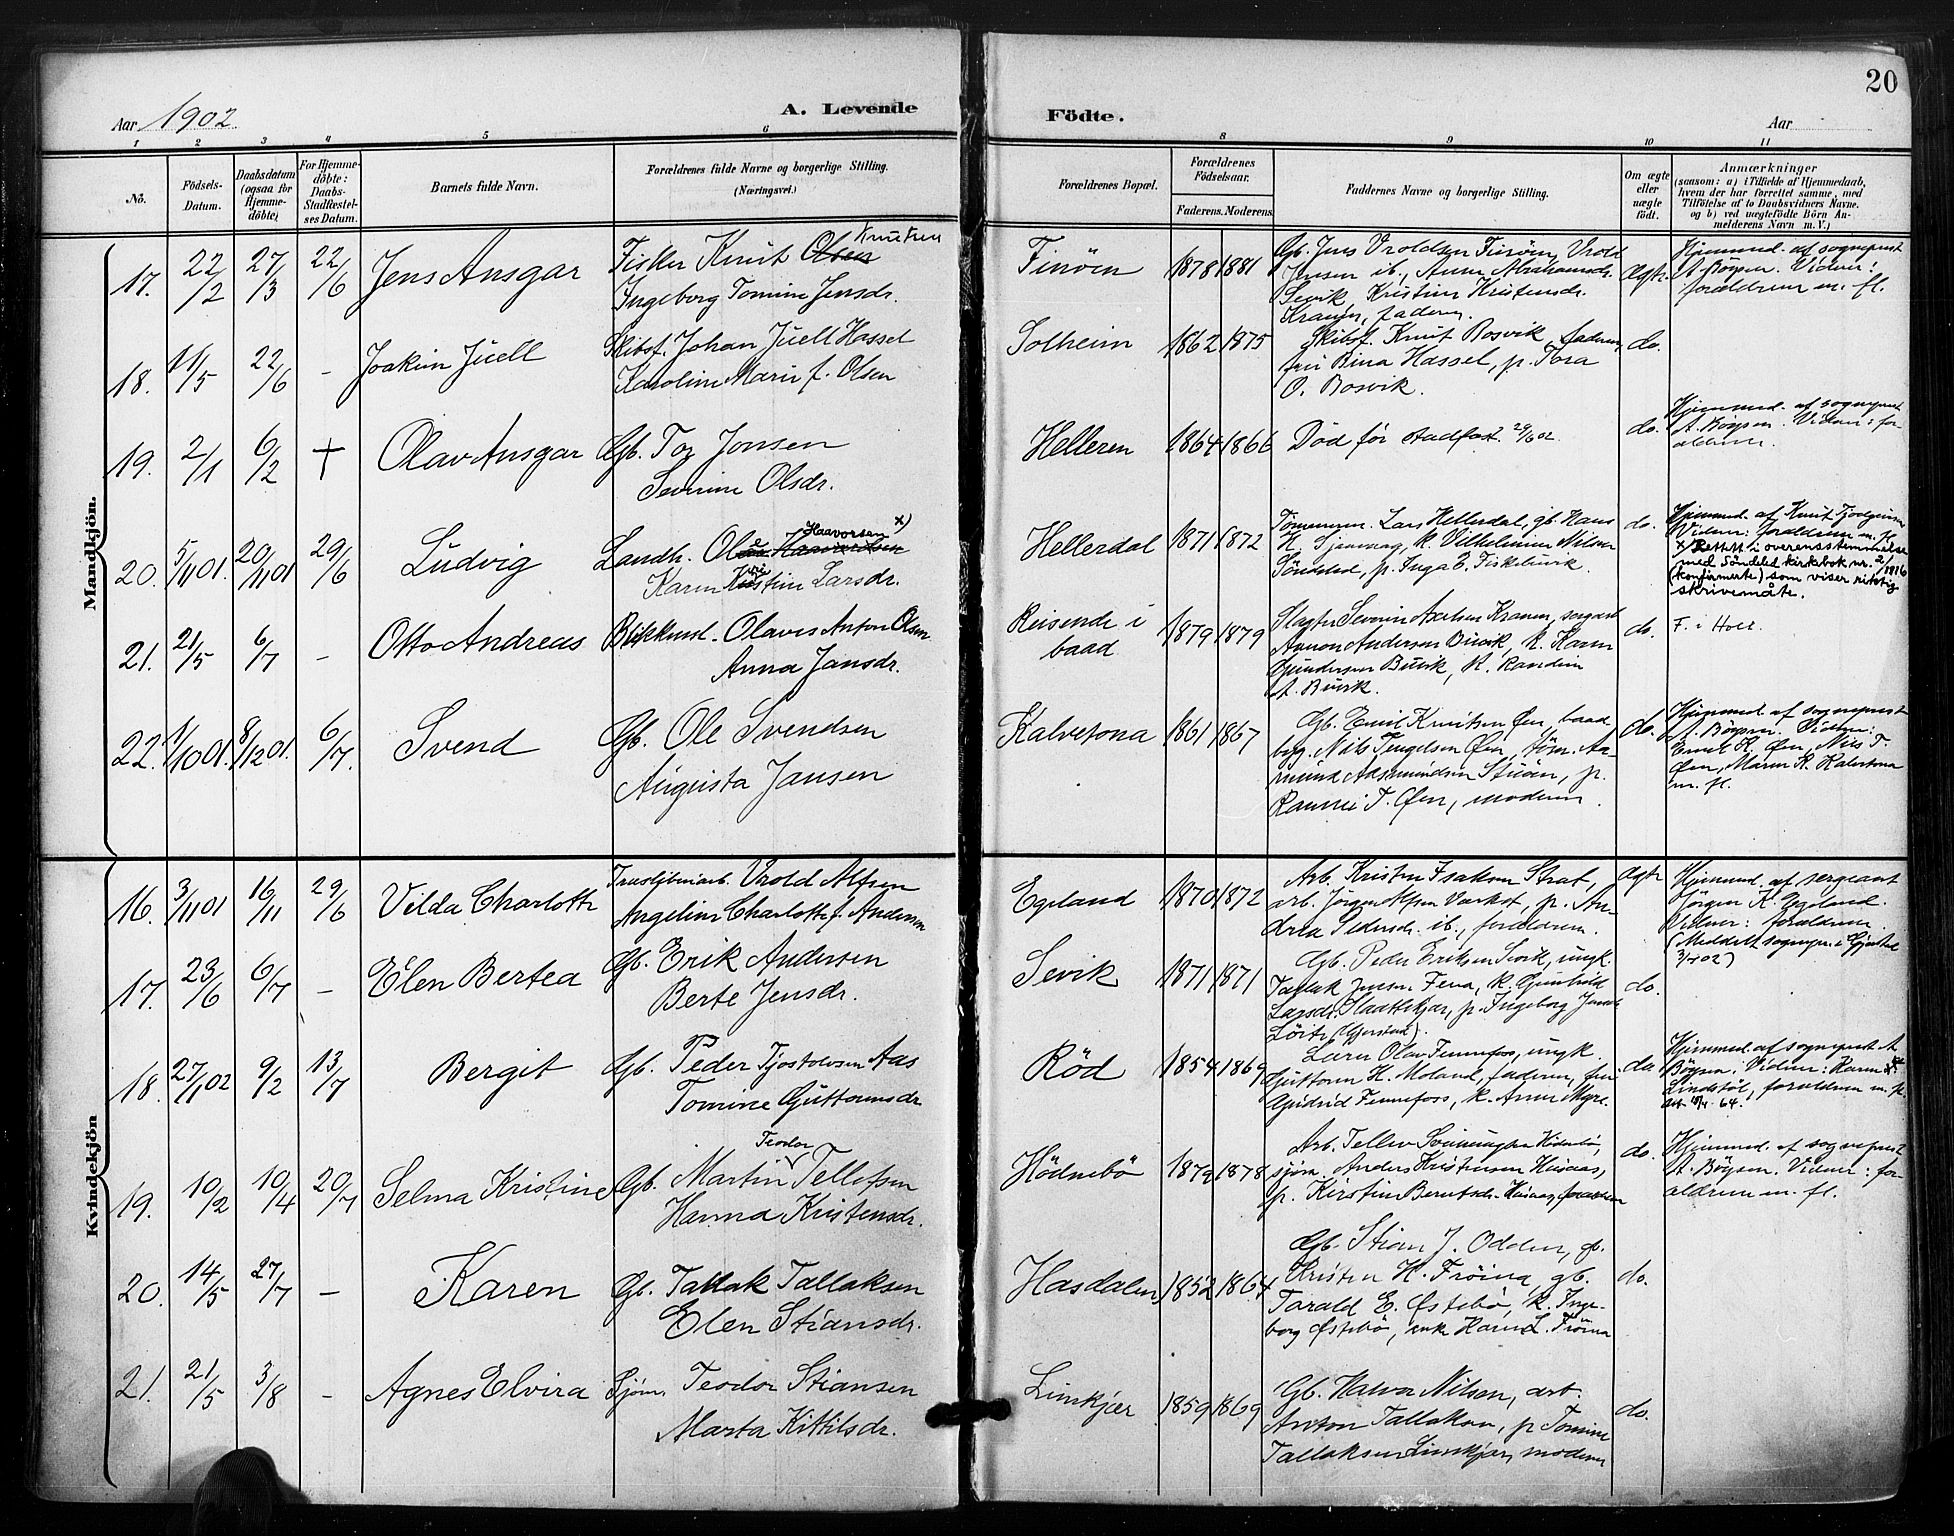 20
Aar 1902.
A. Levende
Födte.
Aar
1
2
3
4
5
6
8
9
10
11
No.
Födsels-
Datum.
Daabsdatum
(ogsaa for
Hjemme-
döbte)
For Hjemme-
döbte:
Daabs-
Stadfæstel-
ses Datum.
Barnets fulde Navn.
Forældrenes fulde Navne og borgerlige Stilling.
(Næringsvei.)
Forældrenes Bopæl.
Forældrenes
Födselsaar.
Faderens. Moderens.
Faddernes Navne og borgerlige Stilling.
Om ægte
eller
uægte
födt.
Anmærkninger
(saasom: a) i Tilfælde af Hjemmedaab,
hvem der har forrettet samme, med
Tilföielse af to Daabsvidners Navne.
og b) ved uægtefödte Börn An-
melderens Navn m. V.)
Mandkjön.
17. 22/2 27/3 22/6 Jens Ansgar
Fisker Knut Olsen Knutsen
Ingeborg Tomine Jensdr.
Finöen 1878 1881
Gb. Jens Vroldsen Finöen, Vrold
Jensen ib., Anne Abrahamsdr.
Sevik, Kristine Kristensdr.
Kranen, faderen.
Ægte.
Hjemmed. af sogneprest
A. Böysen. Vidner:
forældrene m. fl.
18. 11/5 22/6 - Joakim Juell
Skibsf. Johan Juell Hassel
Karoline Marie f. Olsen
Solheim 1862 1875
Skibsf. Knut Bosvik, faderen,
fru Bina Hassel, p. Tora
O. Bosvik.
do.
19. 2/1 6/2 † Olav Ansgar
Gb. Tor Jensen
Severine Olsdr.
Helleren 1864 1866
Död för stadfæst. 29/6 02.
do.
Hjemmed. af sogneprest
A. Böysen. Vidner: for-
ældrene.
20. 5/11 01. 20/11 01 29/6 Ludvig
Landh. Ole Haavorsen x)
Karen Kristine Larsdr.
Hellerdal 1871 1872
Tömmerm. Lars Hellerdal, gb. Hans
H. Sjavaag, k. Vilhelmine Nilsen
Söndeled, p. Inga E. Fiskelvik.
do.
Hjemmed. af Knut
Vidner: forældrene m. fl
x) Rettet i overensstemmelse
med Söndeled kirkebok nr. 2/1816
(konfirmerte) som viser riktig
skrivemåte.
21. 21/5 6/7 - Otto Andreas
Blikkensl. Olaves Anton Olsen
Anna Jansdr.
Reisende i
baad
1879 1879
Slagter Severin Axelsen Kranen,
Andersen Buvik, k. Karen
Gundersen Buvik, k.
A. Buvik.
do.
F. i Holt.
22. 1/10 01. 8/12 01. 6/7. Svend
Gb. Ole Svendsen
Augusta Jansen
Kalvetona 1861 1867
Gb. Emil Knutsen Öen, baad-
byg. Nils Tengelsen Öen, töm. Aa-
mund Aasmundsen Stiaen, p.
T. Öen, moderen.
do.
Hjemmed. af sogneprest
A. Böysen. Vidner:
Emil K. Öen, Nils T.
Öen, Maren K. Kalvetona
m. fl.
Kvindekjön
16. 3/11 01 16/11 29/6 Vilda Charlotte
Træsliberiarb. Vrold Alfsen
Angeline Charlotte f. Andersen
Egeland 1870 1872
Arb. Kristen Isaksen Strat,
arb. Jörgen Alfsen Værket, p. An-
drea Pedersdr. ib., forældrene.
Ægte
Hjemmed. af sergeant
Jörgen K. Egeland.
Vidner: forældrene.
(Meddelt sognepr. i Gjerstad
02)
17. 23/6 6/7 - Elen Bertea
Gb. Erik Andersen
Berte Jensdr.
Sevik 1871 1871
Gb. Peder Eriksen Sevik, ungk.
Tallak Jensen Fena, k. Gunhild
Larsdr. Slaattekjær, p. Ingeborg
Löite (Gjerstad).
do.
18. 27/1 02 9/2 13/7 Bergit
Gb. Peder Tjostolvsen Aas
Tomine Guttormsdr.
Röd 1854 1869
Lærer Olav Fennefoss, ungk.
Guttorm H. Moland, faderen, fru
Gudrid Fennefoss, k. Anne Myre.
do
Hjemmed. af sogneprest A
Böysen. Vidner: Karen
Lindstöl, forældrene m. fl.
64.
19. 10/2 10/4 20/7 Selma Kristine
Gb. Martin Teodor Tellefsen
Hanna Kristensdr.
Hödnebö 1872 1878
Arb. Tellev Hödnebö,
sjöm. Anders Kristensen Husaas,
p. Kirstine Berntsdr. Husaas, forældrene
do.
Hjemmed. af sogneprest
A. Böysen. Vidner: for-
ældrene m. fl.
20. 14/5 27/7 - Karen
Gb. Tallak Tallaksen
Elen Stiansdr.
Hasdalen 1852 1864
Gb. Stian J. Odden, gb.
Kristen H. Fröina, gb.
Tarald E. Östebö, k. Inge-
borg Östebö, enke Karen L. Fröina
do.
21. 21/5 3/8 - Agnes Elvira
Sjöm. Teodor Stiansen
Marta Kittilsdr.
Limkjær 1859 1869
Gb. Halvor Nilsen, arb.
Anton Tallaksen, p. Tomine
Tallaksen Limkjær, moderen
do.